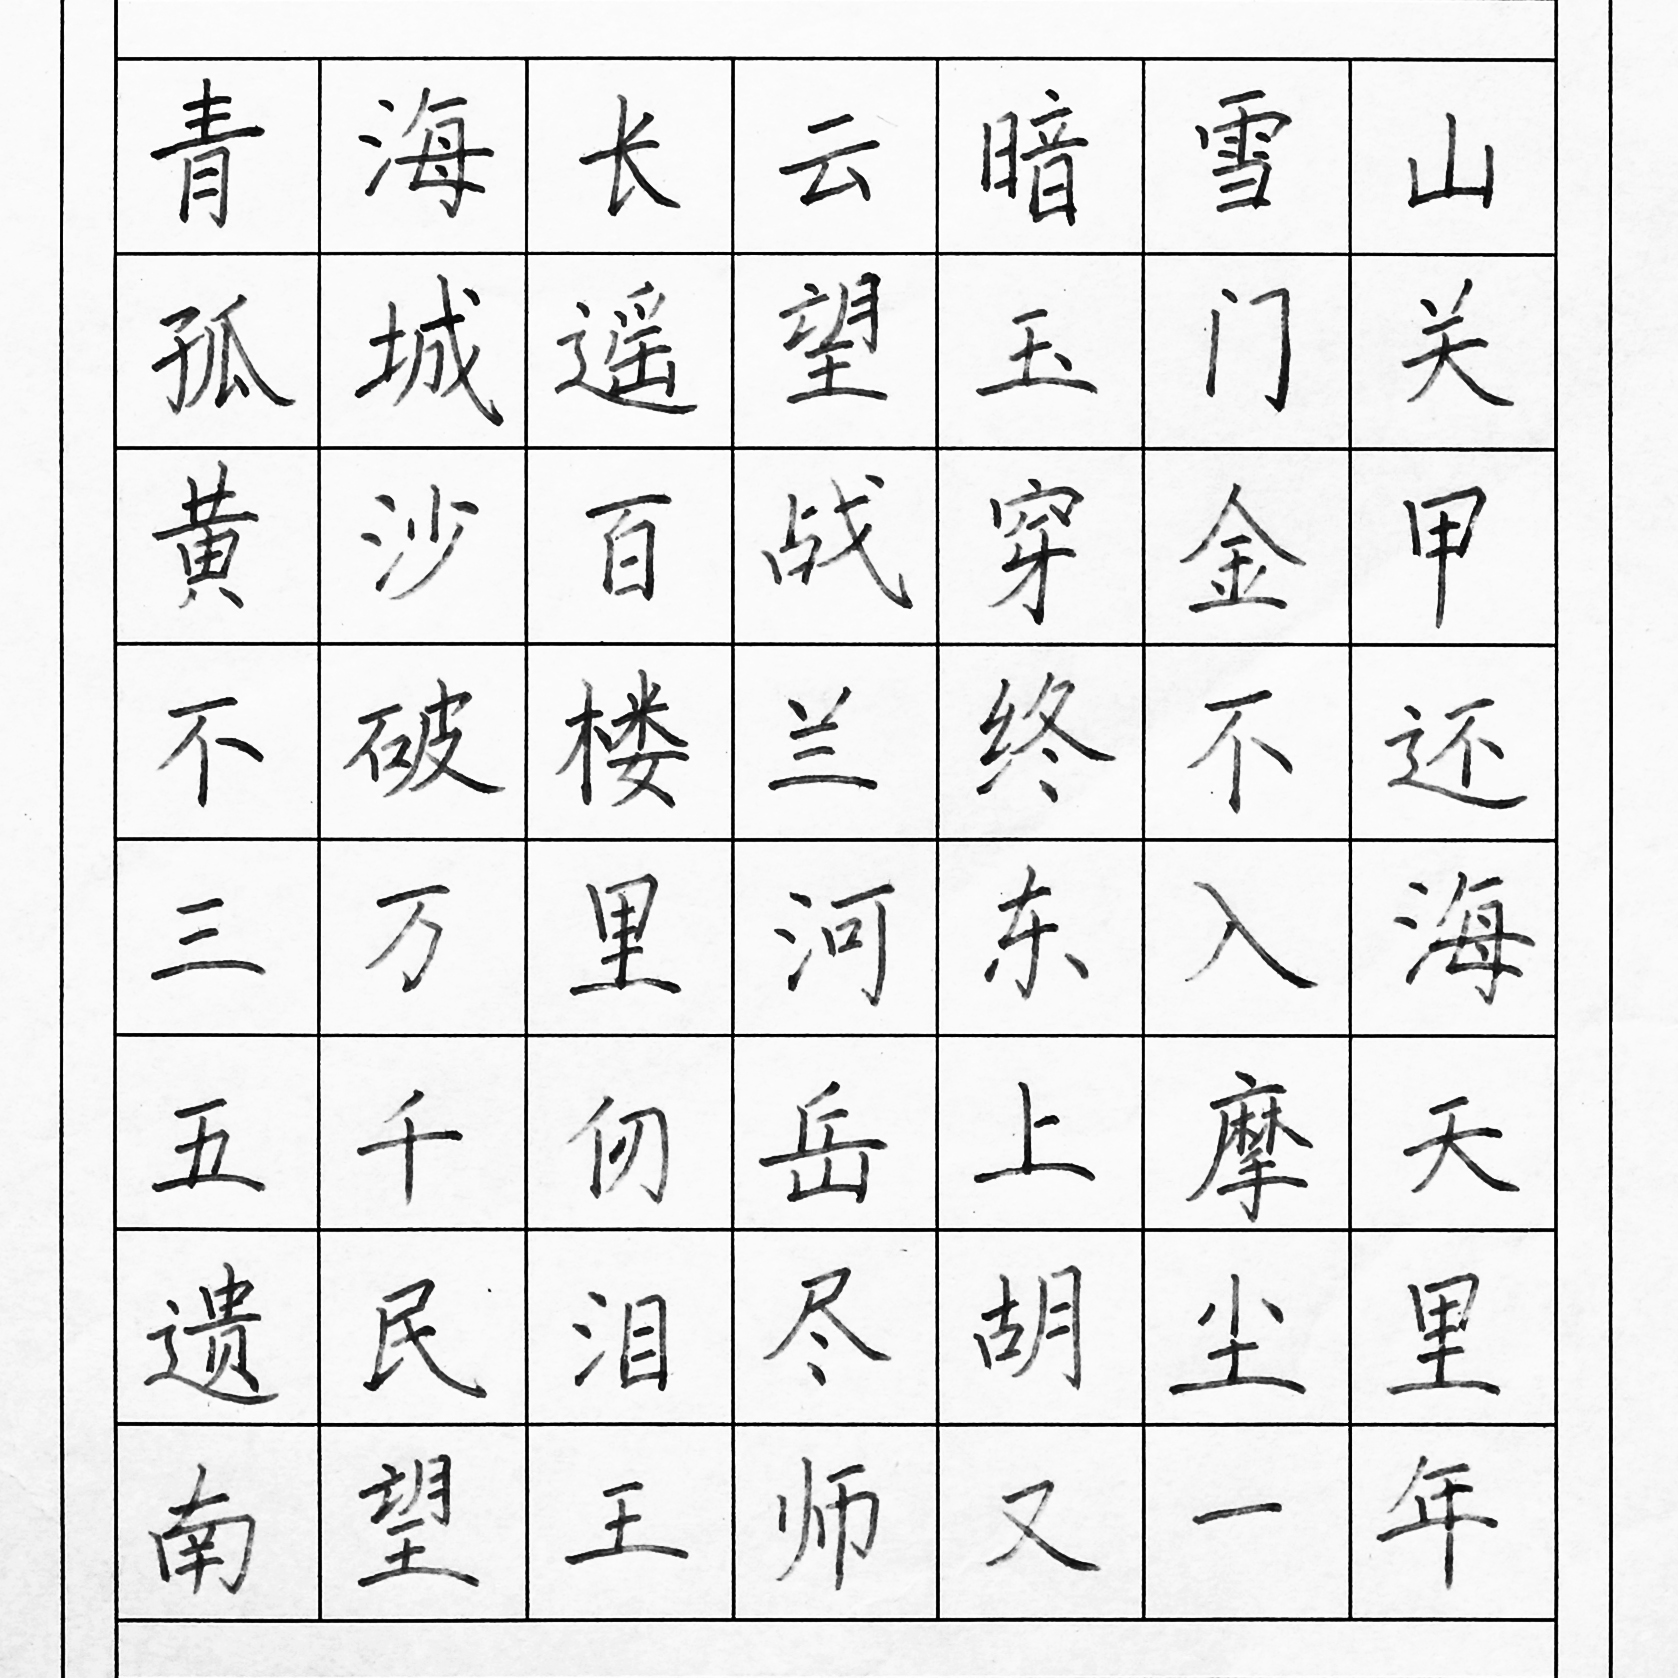 青海长云暗雪山
孤城遥望玉门关
黄沙百战穿金甲
不破楼兰终不还
三万里河东入海
五千仞岳上摩天
遗民泪尽胡尘里
南望王师又一年